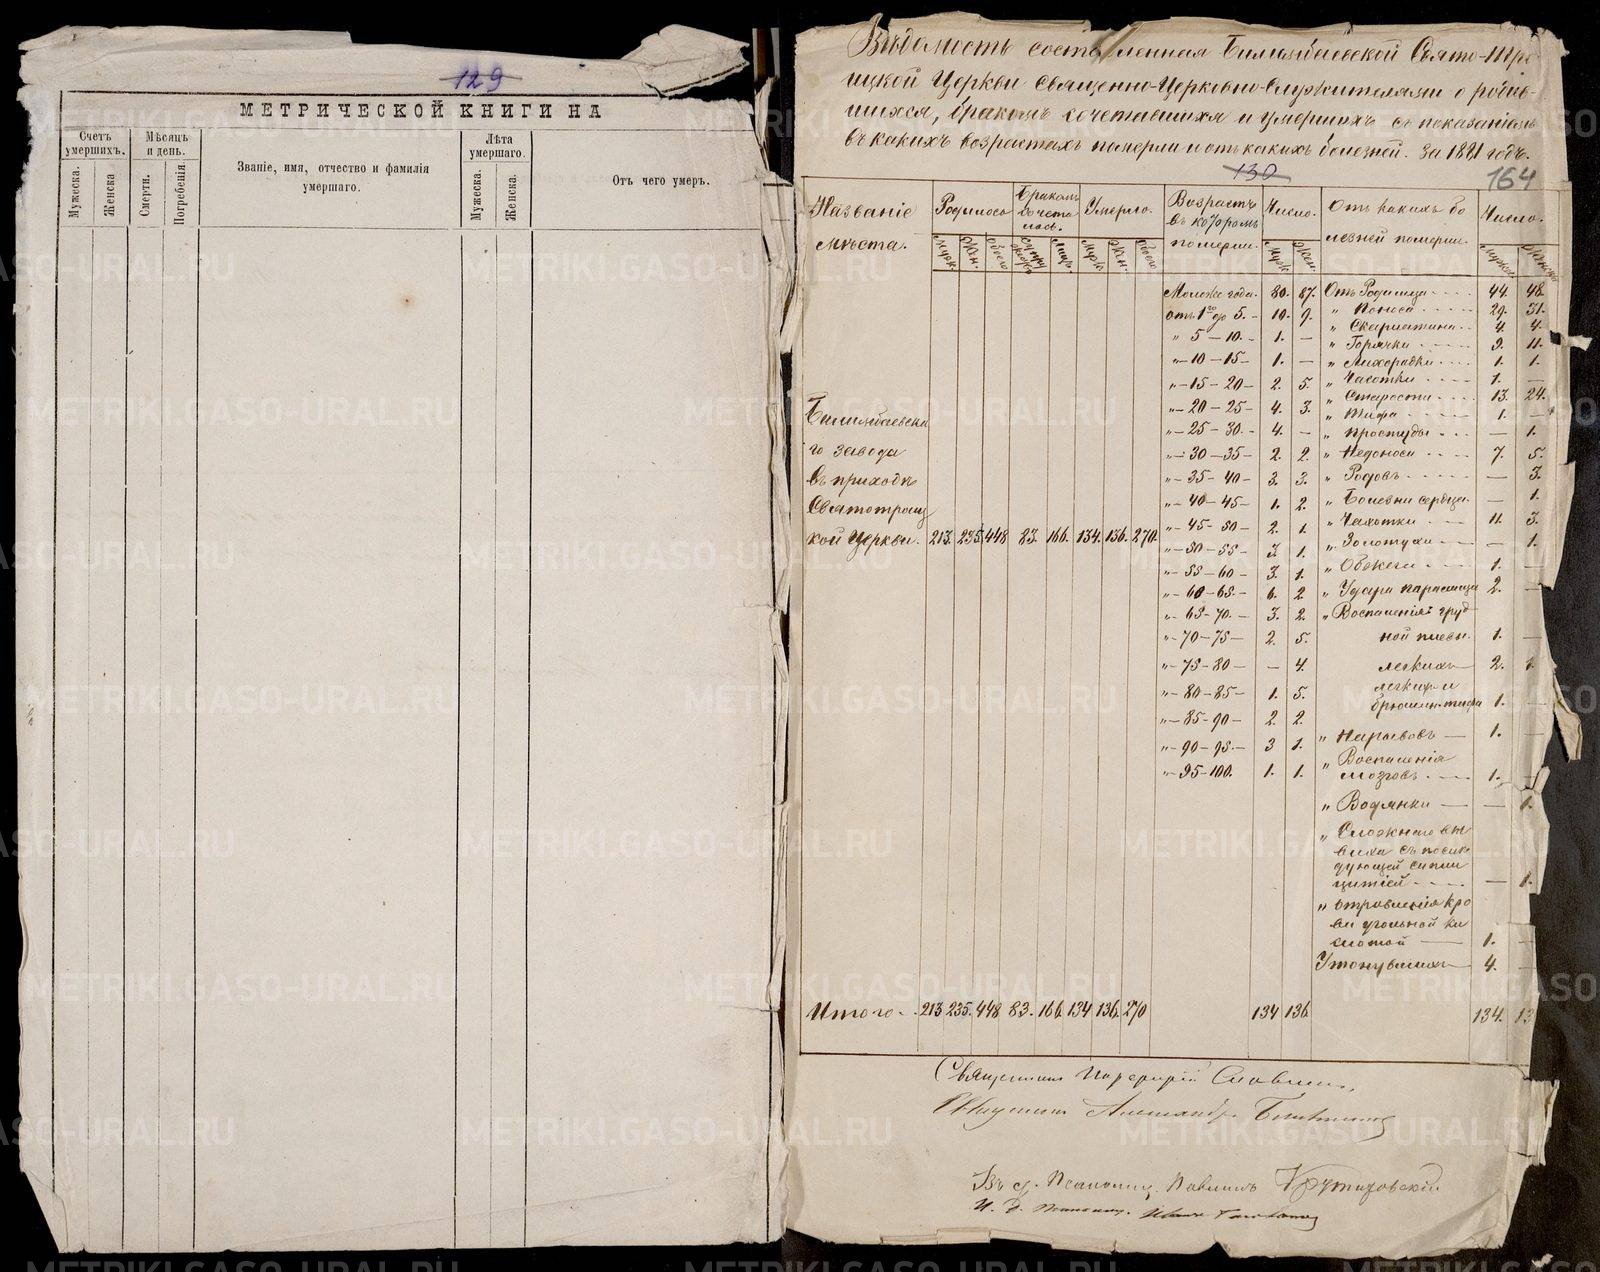 129
МЕТРИЧЕСКОЙ КНИГИ НА
Счетъ умершихъ.
Мужеска.
Женска
Мѣсяцъ и день.
Смерти.
Погребенія.
Званіе, имя, отчество и фамилія умершаго.
Лѣта умершаго.
Мужеска.
Женска.
Отъ чего умеръ.
Вѣдомость составленная Билимбаевской Свято-Тро
ицкой Церкви Священно-Церковно-Служителями о родив-
шихся, бракомъ сочетавшихся и умершихъ съ показаніемъ
въ какихъ возрастахъ померли и отъ какихъ болезней. За 1891 годъ.
130
164
Названіе мѣста.
Родилось
Муж.
Жен.
Обоего
Бракомъ сочета лось.
Лицъ.
Умерло.
Муж.
Жен.
Обоего
Возрастъ въ которомъ померли.
Число.
Муж.
Жен.
Отъ какихъ бо лезней померли.
Число.
Билимбаевска
го завода
въ приходѣ
Святотроиц
кой Церкви. 213. 235. 448 83. 166. 134. 136. 270.
Моложе года. 80. 87.
отъ 1го до 5. - 10. 9.
" 5 - 10. - 1. -
" - 10 - 15 - 1. -
" - 15 - 20 - 2. 5.
" - 20 - 25 - 4. 3.
" - 25 - 30. - 4. -
" - 30 - 35 - 2. 2.
" - 35 - 40 - 3. 3.
" - 40 - 45 - 1. 2.
" - 45 - 50 - 2. 1.
" - 50 - 55 - 3. 1.
" - 55 - 60 - 3. 1.
" - 60 - 65. - 6. 2
" - 65 - 70. - 3. 2.
" - 70 - 75 - 2. 5.
" - 75 - 80 - - 4.
" - 80 - 85 - 1. 5.
" - 85 - 90 - 2 2.
" - 90 - 95. - 3 1.
" - 95 - 100. 1. 1.
Отъ Родимца 44. 48.
" Поноса 29. 31.
" Скарлатина 4. 4.
" Горячки 9. 11.
" Лихорадки 1. 1.
" Чесотки 1. -
" Старости 13. 24.
" Тифа 1. -
" Простуды - 1.
" Недоноси 7. 5.
" Родовъ - 3.
" Болезни сердца - 1.
" Чахотки 11. 3.
" Золотухи - 1.
" Обжеги 1. -
" Удара паралица 2. -
" Воспаленія груд
ной плевы. 1. -
легкихъ 2. 1.
легких и
брюшн. тифа 1. -
" Нарывовъ 1. -
" Воспаленія
мозговъ 1. -
" Водянки - 1.
" Сложнаго вы
виха съ послѣ
дующей
- 1.
" отравленія кро
ви угольной ки
слотой 1. -
Утонувшихъ 4. -
Итого. 213 235. 448 83. 166. 134 136. 270 134 136. 134. 13
Священникъ Порфирій Славнинъ.
Священникъ Александръ
Псаломщ. Павлинъ Крутиховскій
И. д. псаломщ. Иванъ
METRIKI.GASO-URAL.RU